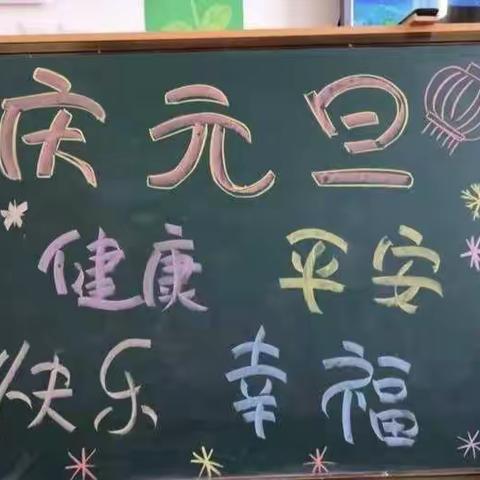 庆元旦
健康 平安
快乐 幸福